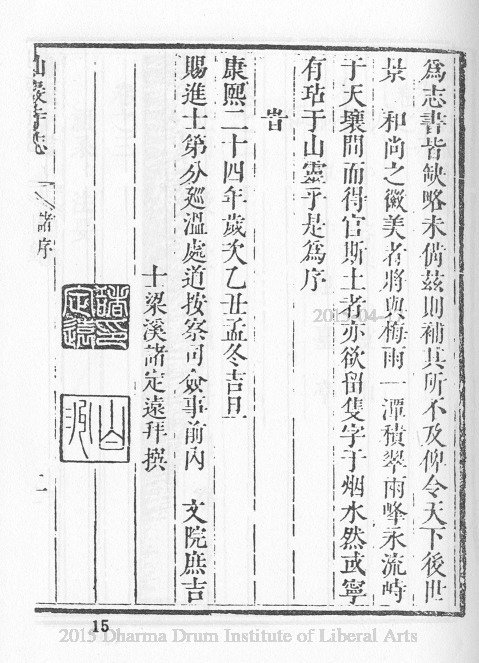 爲志書皆缺略未備茲則補其所不及俾令天下後世
景 和尚之徽美者將與梅雨一潭積翠兩峰永流峙
于天壤間而得官斯土者亦欲留隻字于烟水然或寧
有玷于山靈乎是爲序
旹
康熙二十四年歲次乙丑孟冬吉旦
賜進士第分廵溫處道按察司僉事前內 文院庶吉
士梁溪諸定遠拜撰
諸序
二
15
2015 Dharma Drum Institute of Liberal Arts